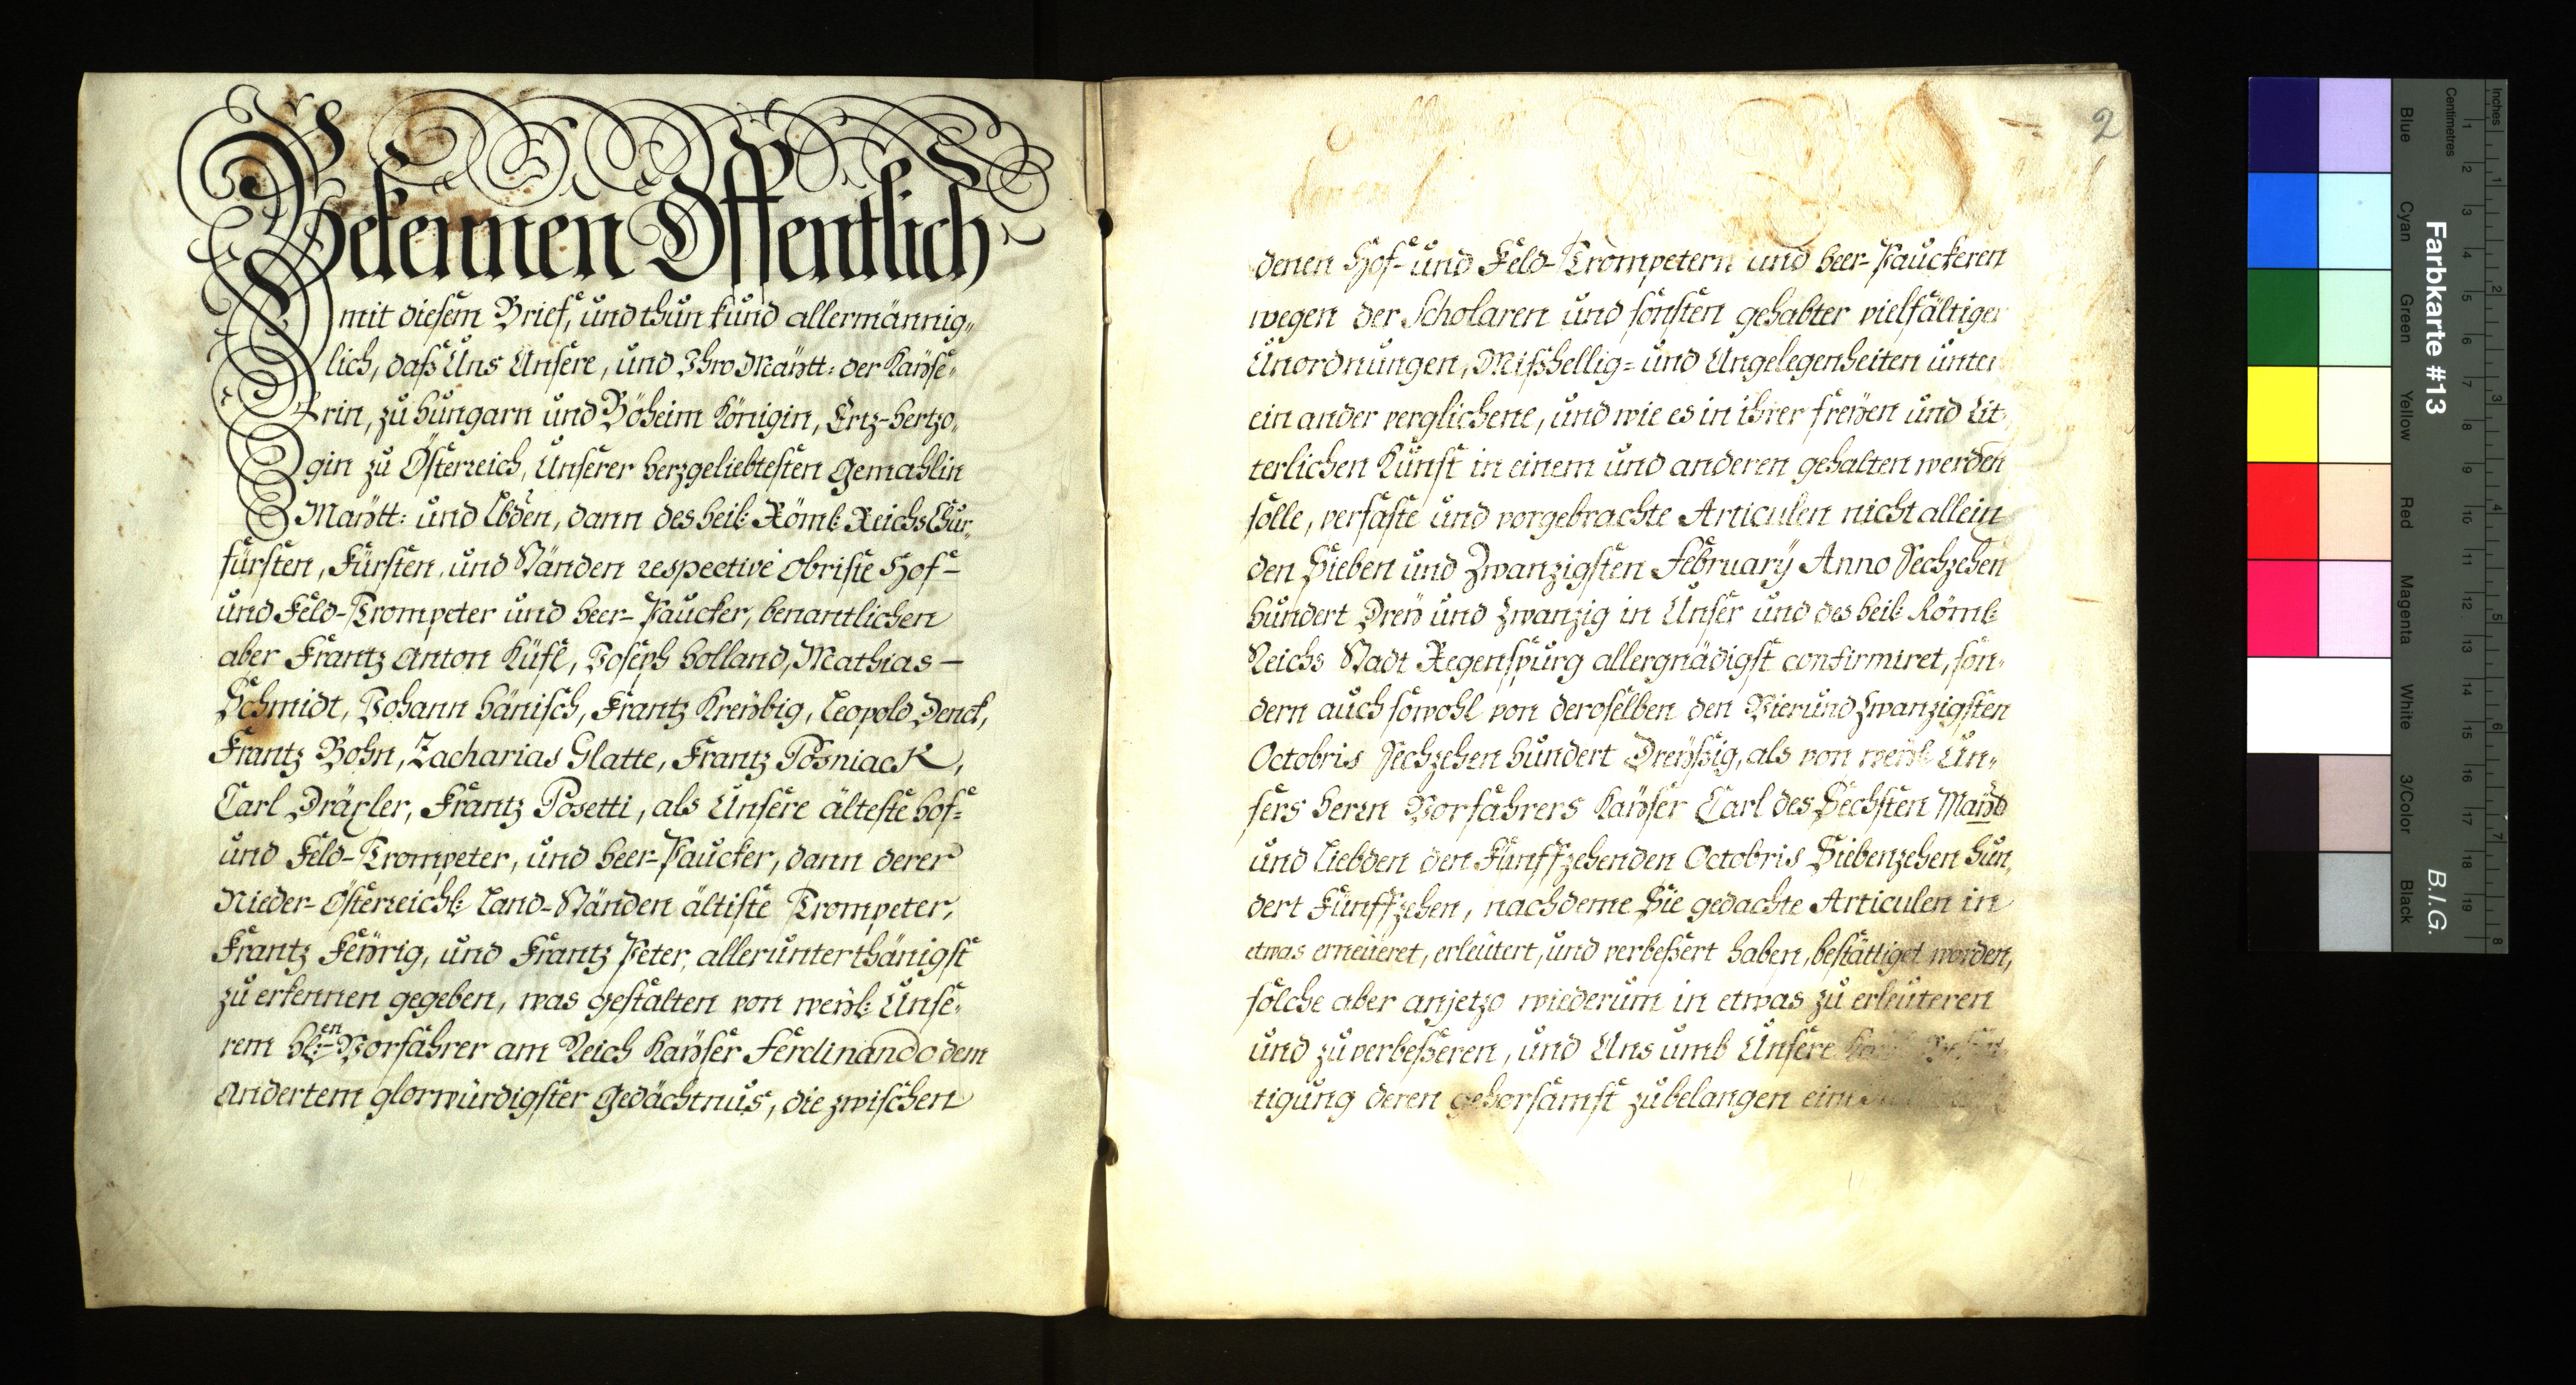 Bekennen Offentlich
mit diesem Brief, und thun kund allermännig„
lich, daß Uns Unsere, und Ihro Maÿtt: der Kaÿse„
rin, zu Hungarn und Böheim Königin, Ertz-Hertzo„
gin zu Österreich, Unserer herzgeliebtesten Gemahlin
Maÿtt: und Lbden, dann des heil: Röml: Reichs Chur„
fürsten, Fürsten, und Ständen respective Obriste Hof-
und Feld-Trompeter und Heer-Paucker, benantlichen
aber Frantz Anton Küfel, Joseph Holland, Mathias-
Schmidt, Johann Hänisch, Frantz Kreÿbig, Leopold Denck,
Frantz Bohn, Zacharias Glatte, Frantz Posniack,
Carl Dräxler, Frantz Posetti, als Unsere älteste Hof=
und Feld-Trompeter, und Heer-Paucker, dann derer
Nieder-Österreichl: Land-Ständen ältiste Trompeter,
Frantz Feÿrig, und Frantz Peter, allerunterthänigst
zu erkennen gegeben, was gestalten von weÿl: Unse„
rem Hl:en Vorfahrer am Reich Kaÿser Ferdinando dem
Andertem glorwürdigster Gedächtnus, die zwischen
2
denen Hof- und Feld-Trompetern und Heer-Pauckeren
wegen der Scholaren und sonsten gehabter vielfältiger
Unordnungen, Mißhellig= und Ungelegenheiten unter
ein ander verglichene, und wie es in ihrer freÿen und Rit„
terlichen Kunst in einem und anderen gehalten werden
solle, verfaste und vorgebrachte Articulen nicht allein
den Sieben und Zwanzigsten Februarÿ Anno Sechzehen
hundert Dreÿ und Zwanzig in Unser und des heil: Röml:
Reichs Stadt Regenspurg allergnädigst confirmiret, son„
dern auch sowohl von deroselben den Vierund Zwanzigsten
Octobris Sechzehen hundert Dreÿßig, als von weÿl: Un„
sers Herrn Vorfahrers Kaÿser Carl des Sechsten Maÿtt
und Liebden den Fünffzehenden Octobris Siebenzehen hun„
dert Fünffzehen, nachdeme Sie gedachte Articulen in
etwas erneüeret, erleütert, und verbeßert haben, bestättiget worden,
solche aber anjetzo wiederum in etwas zu erleüteren
und zu verbeßeren, und Uns umb Unsere
tigung deren gehorsamst zu belangen
Farbkarte #13
B.I.G.
Inches
1 2 3 4 5 6 7 8
Centimetres
1 2 3 4 5 6 7 8 9 10 11 12 13 14 15 16 17 18 19
Blue
Cyan
Green
Yellow
Red
Magenta
White
3/Color
Black